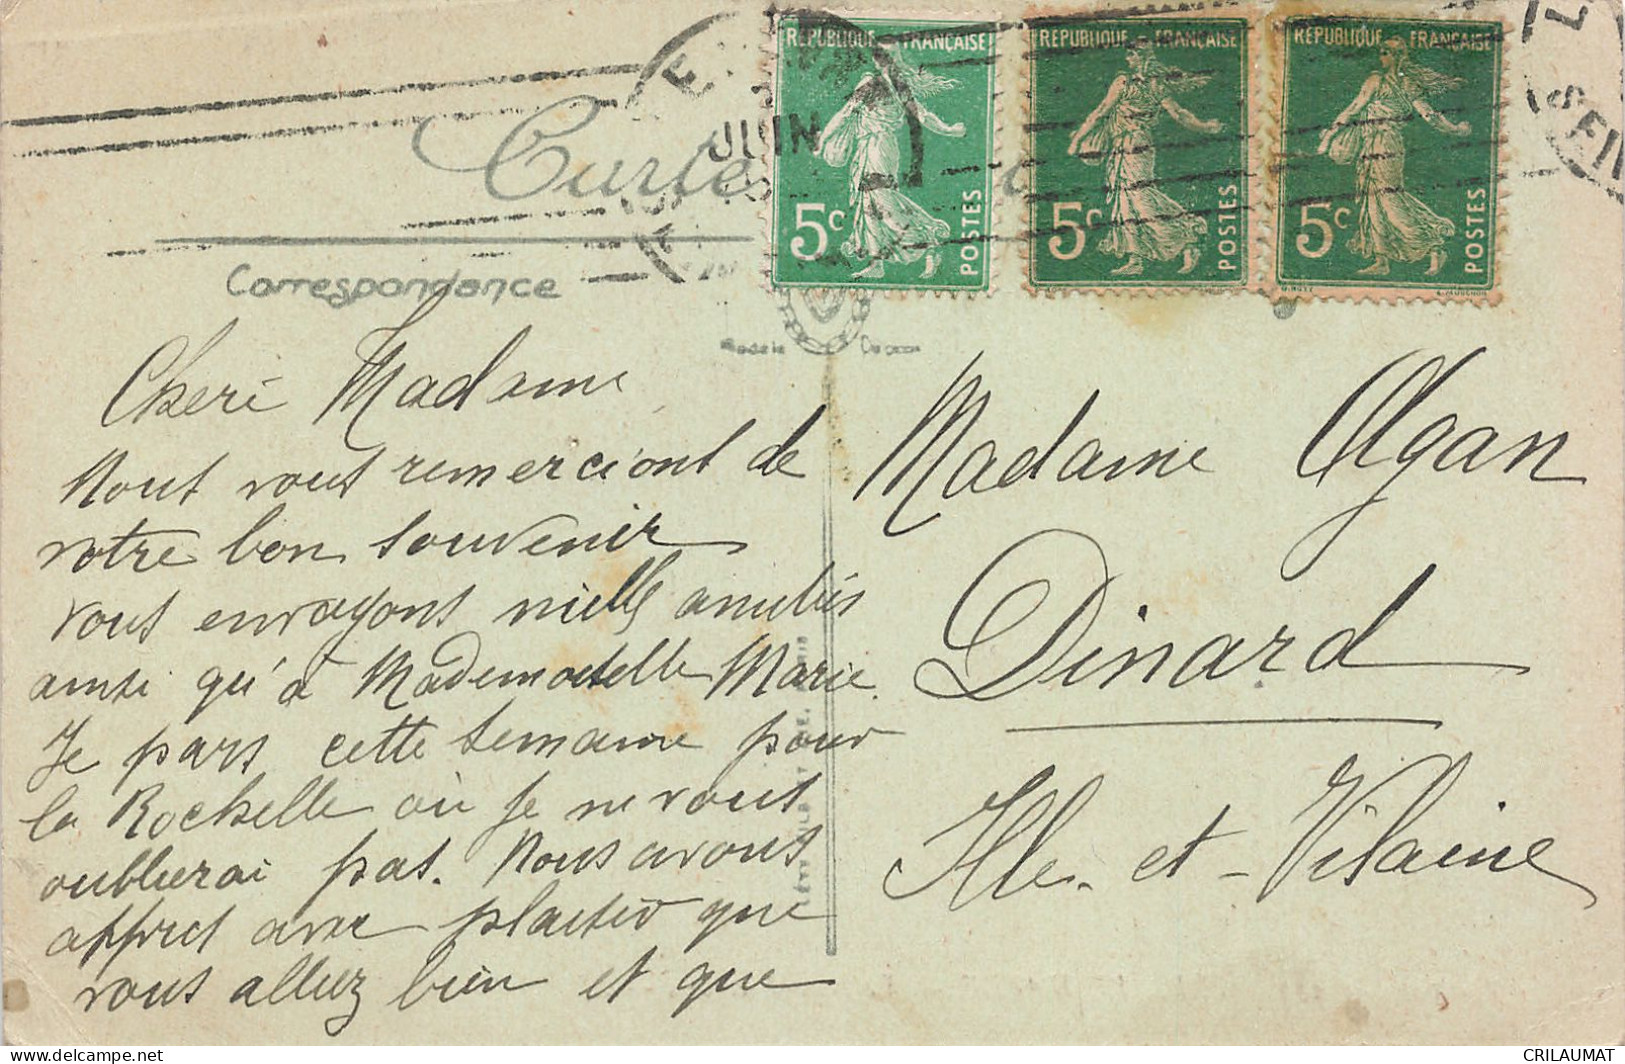 RÉPUBLIQUE FRANÇAISE
5c POSTES
RÉPUBLIQUE FRANÇAISE
5c POSTES
RÉPUBLIQUE FRANÇAISE
5c POSTES
JUIN
Carte
Correspondance
Cheri Madame
Nout vout remerciont de
votre bon souvenir
vout envoyont mille amitiés
ainsi qu'à Mademoiselle Marie.
Je pars cette semaine pour
la Rochelle où je ne vout
oublierai pat. Nous avons
appret avec plaisir que
vous alliez bien et que
Madame Algan
Dinard
Ille-et-Vilaine
CRILAUMAT